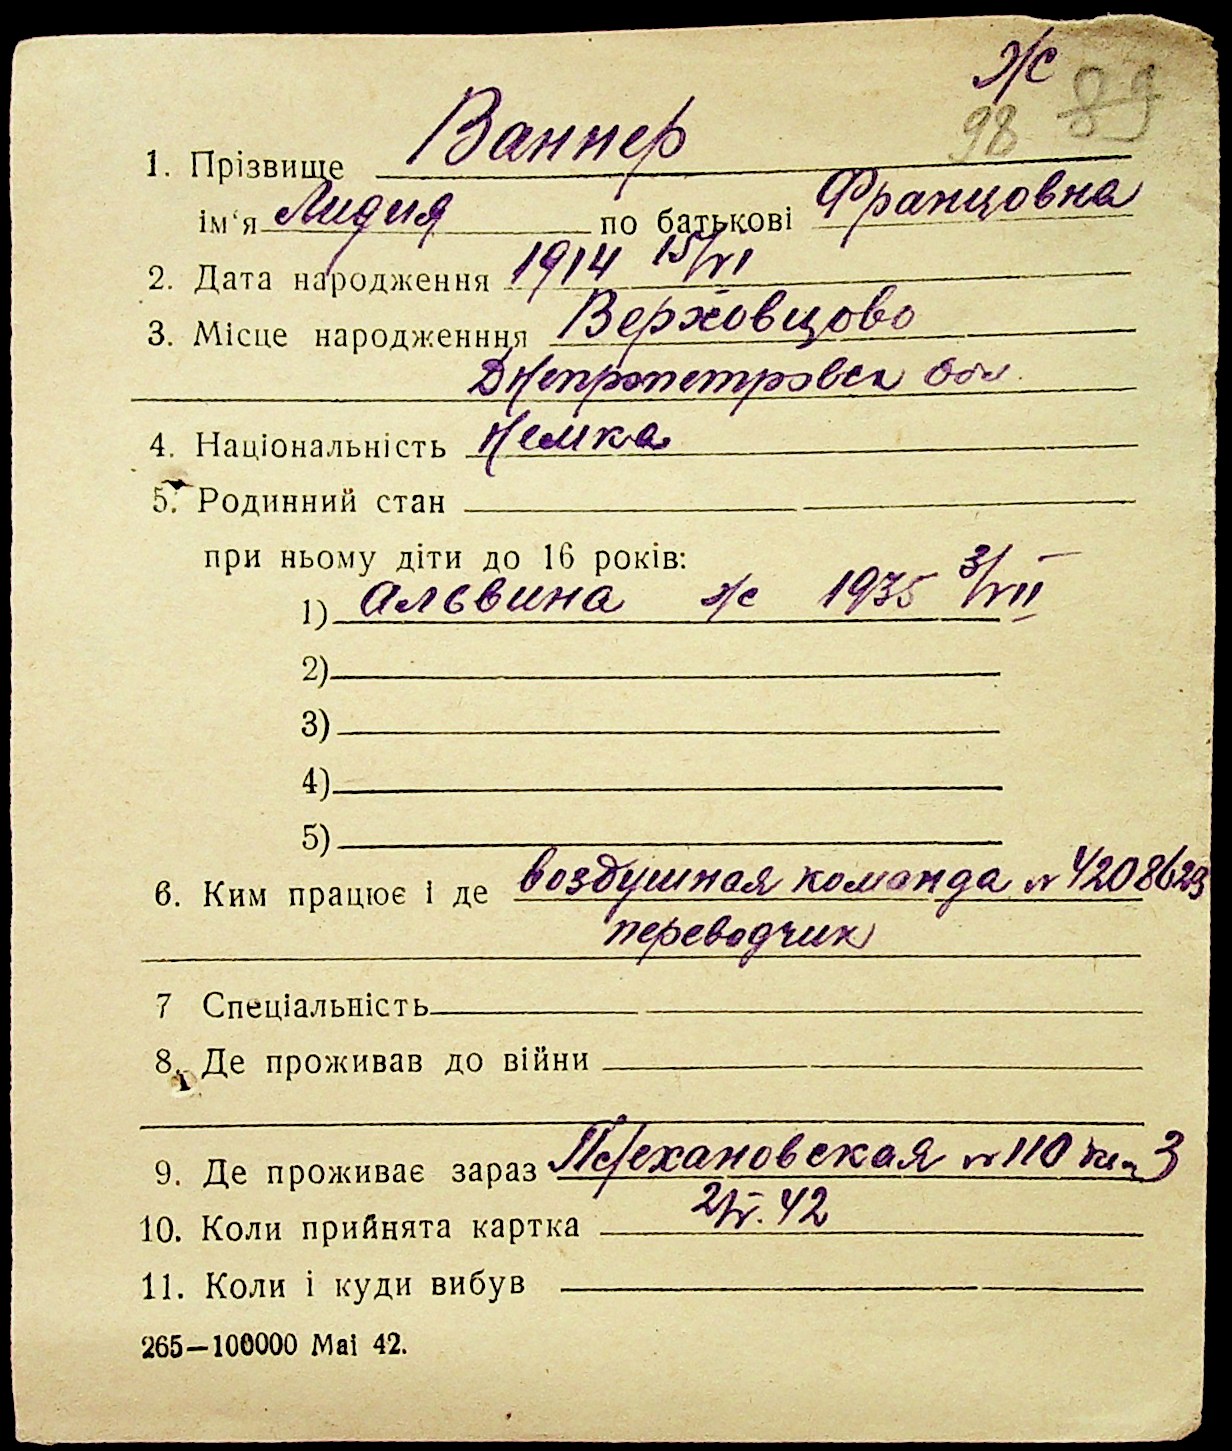 ж
98 89
1. Прізвище Ваннер
ім‘я Лидия по батькові Францовна
2. Дата народження 1914 15/VI
3. Місце народженння Верховцово
Днепропетровск Обл.
4. Національність Немка
5. Родинний стан
при ньому діти до 16 років:
1) Альвина ж 1935 3/VII
2)
3)
4)
5)
6. Ким працює і де воздушная команда № 4208623
переводчик
7 Спеціальність
8. Де проживав до війни
9. Де проживає зараз Плехановская № 110 3
10. Коли прийнята картка 42
11. Коли і куди вибув
265—100000 Mai 42.